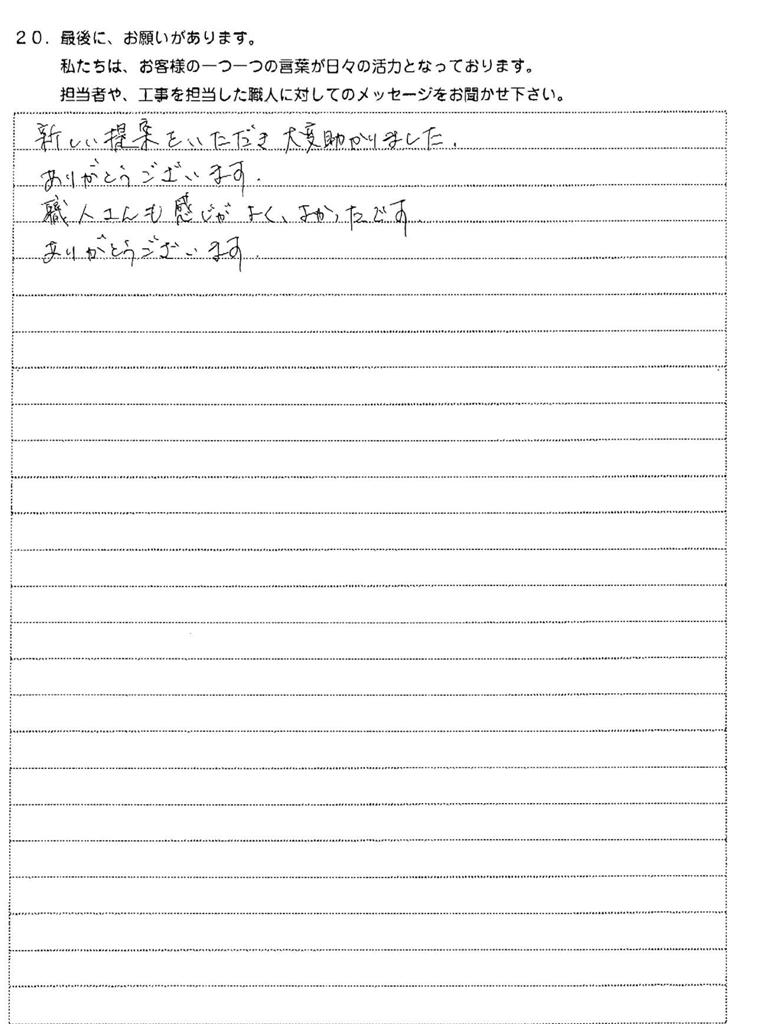 20. 最後に、お願いがあります。
私たちは、お客様の一つ一つの言葉が日々の活力となっております。
担当者や、工事を担当した職人に対してのメッセージをお聞かせ下さい。
新しい提案をいただき大変助かりました.
ありがとうございます.
職人さんも感じがよく、よかったです.
ありがとうございます.